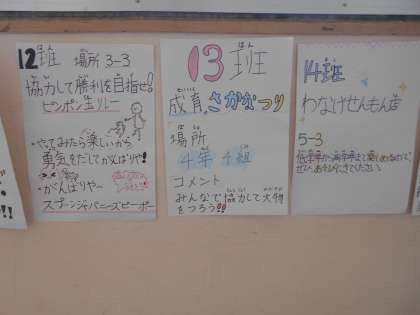 12班 場所 3-3
協力して勝利を目指せ!
ピンポン玉リレー
・やってみたら楽しいから
勇気をだしてがんばりや!
・がんばりや〜
スプーンジャパニーズピーポー
13班
成育、さかなつり
場所
4年4組
コメント
みんなで協力して大物
をつろう!!
14班
わなげせんもん店
5-3
低学年から高学年まで楽しめるので、
ぜひ、あそびにきてください。